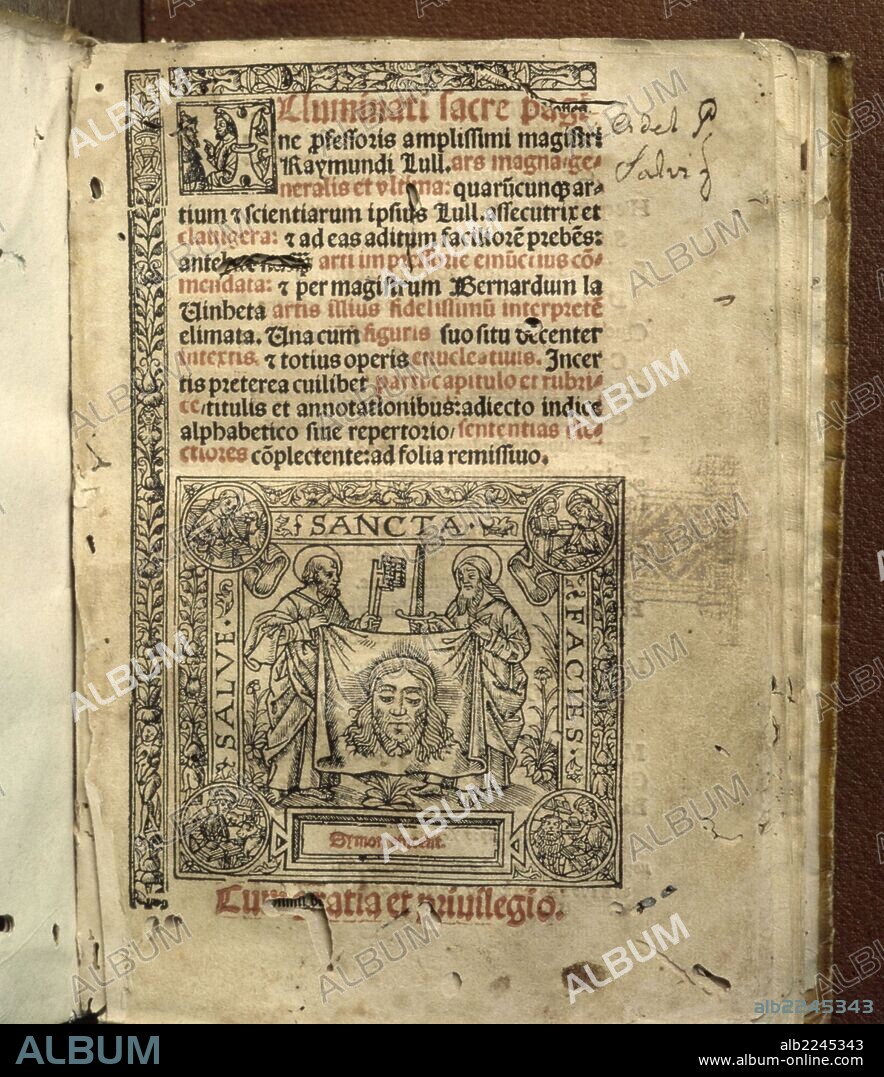 Illuminati sacre pagi-
ne ꝓfessoris amplissimi magistri
Raymundi Lull. ars magna ge-
neralis et vltima: quarūcunqꝫ ar-
tium ⁊ scientiarum ipsius Lull. assecutrix et
clauigera: ⁊ ad eas aditum faciliorē prebēs:
ante arti impressorie emūctius cō-
mendata: ⁊ per magistrum Bernardum la
Uinheta artis illius fidelissimū interpretē
elimata. Una cum figuris suo situ decenter
intextis. ⁊ totius operis enucleatiuis. Incer
tis preterea cuilibet parti capitulo et rubri-
ce/titulis et annotationibus: adiecto indice
alphabetico siue repertorio/sententias
ctiores cōplectente: ad folia remissiuo.
del P.
Salvi
SANCTA.
SALVE.
FACIES.
Cum gratia et priuilegio.
ALBUM
alb2245343
alb2245343
www.album-online.com